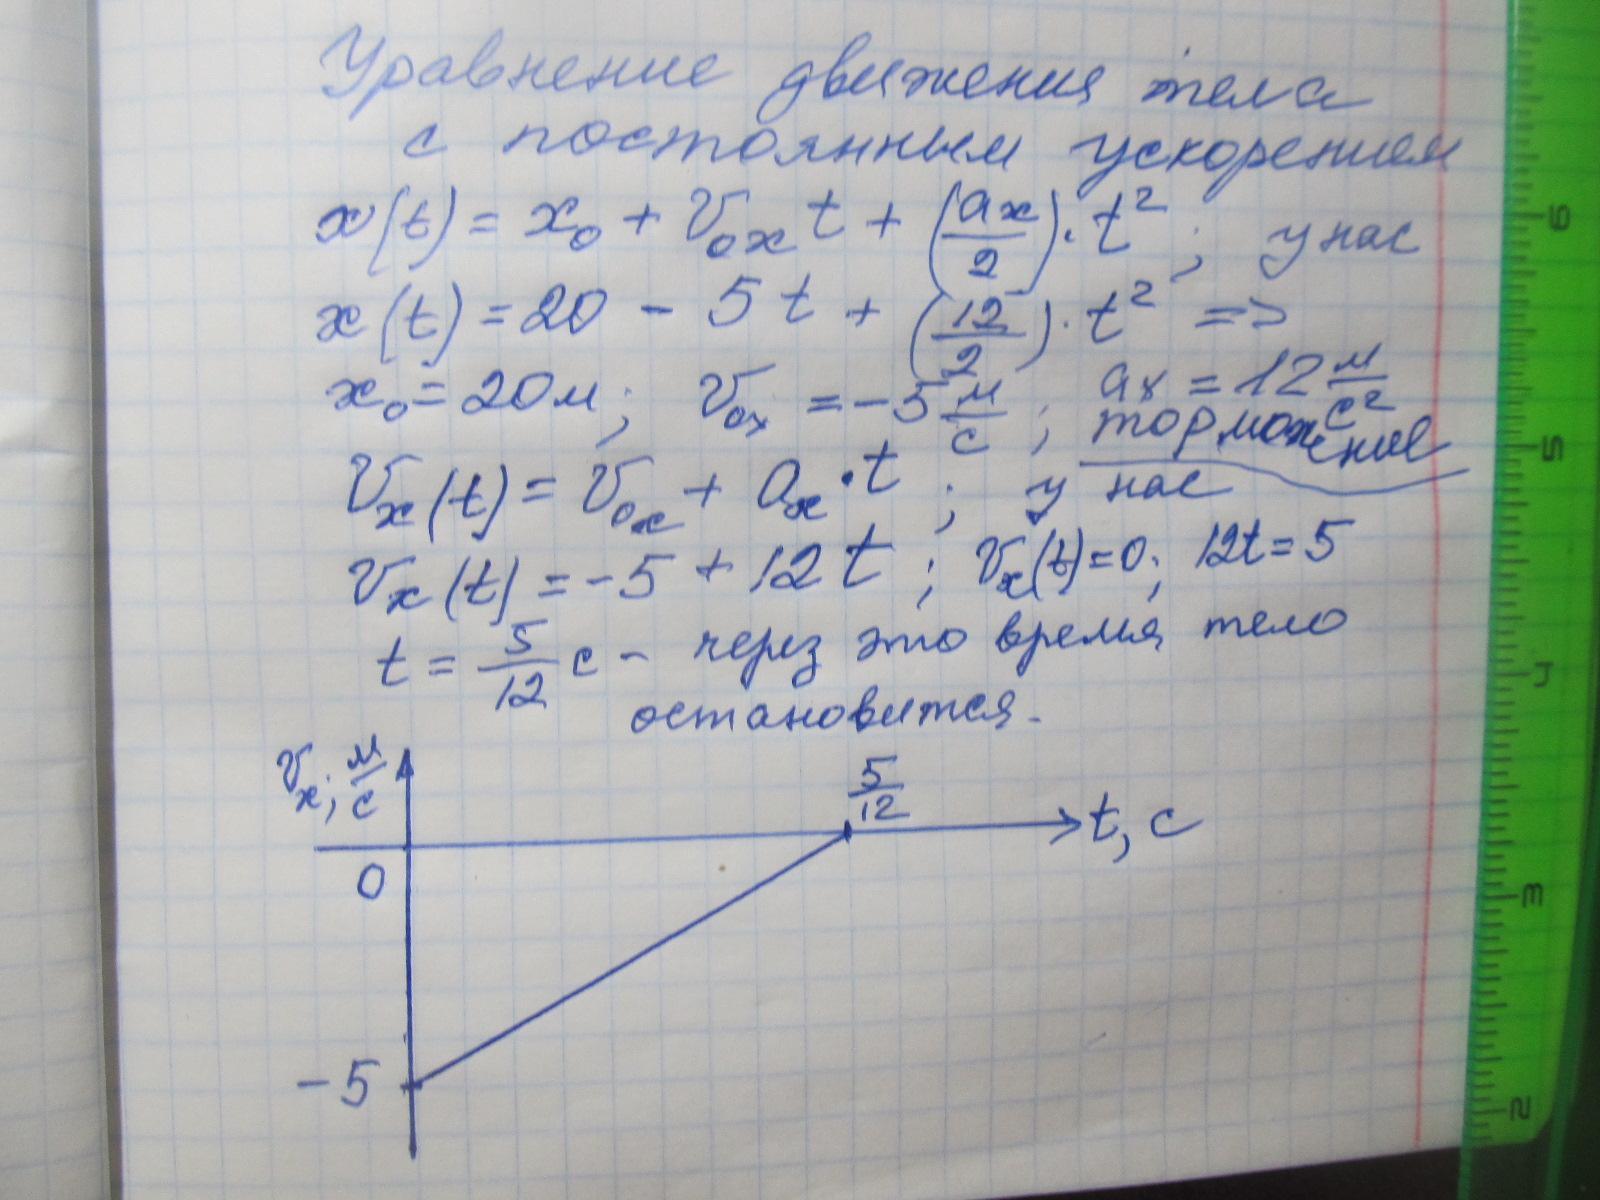 Уравнение движения тела
с постоянным ускорением
x(t) = x₀ + V₀ₓ t + (aₓ/2)·t² ; у нас
x(t) = 20 - 5t + (12/2)·t² =>
x₀ = 20м; V₀ₓ = -5 м/с ; aₓ = 12 м/с²
торможение
Vₓ(t) = V₀ₓ + aₓ·t ; у нас
Vₓ(t) = -5 + 12t ; Vₓ(t)=0; 12t = 5
t = 5/12 с - через это время тело
остановится.
Vₓ; м/с
5/12
t, с
0
-5
6
5
4
3
2